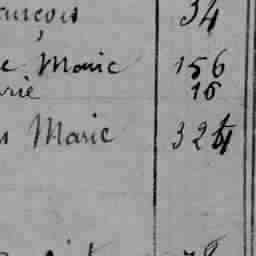 ançois 34
e Marie 156
rie 16
s Marie 324